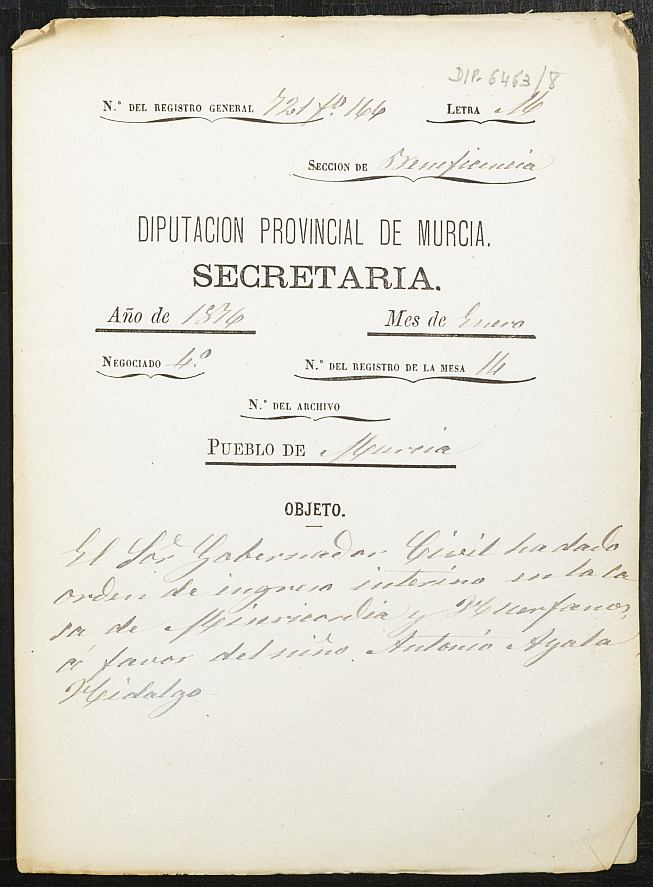 DIP. 6463/8
N.° DEL REGISTRO GENERAL 721 fº. 166 LETRA M
SECCION DE Beneficencia
DIPUTACION PROVINCIAL DE MURCIA.
SECRETARIA.
Año de 1876 Mes de Enero
NEGOCIADO 4.º N.° DEL REGISTRO DE LA MESA 14
N.° DEL ARCHIVO
PUEBLO DE Murcia
OBJETO.
El Sor. Gobernador Civil ha dado
orden de ingreso interino en la ca
sa de Misericordia y Huerfanos,
á favor del niño Antonio Ayala
Hidalgo